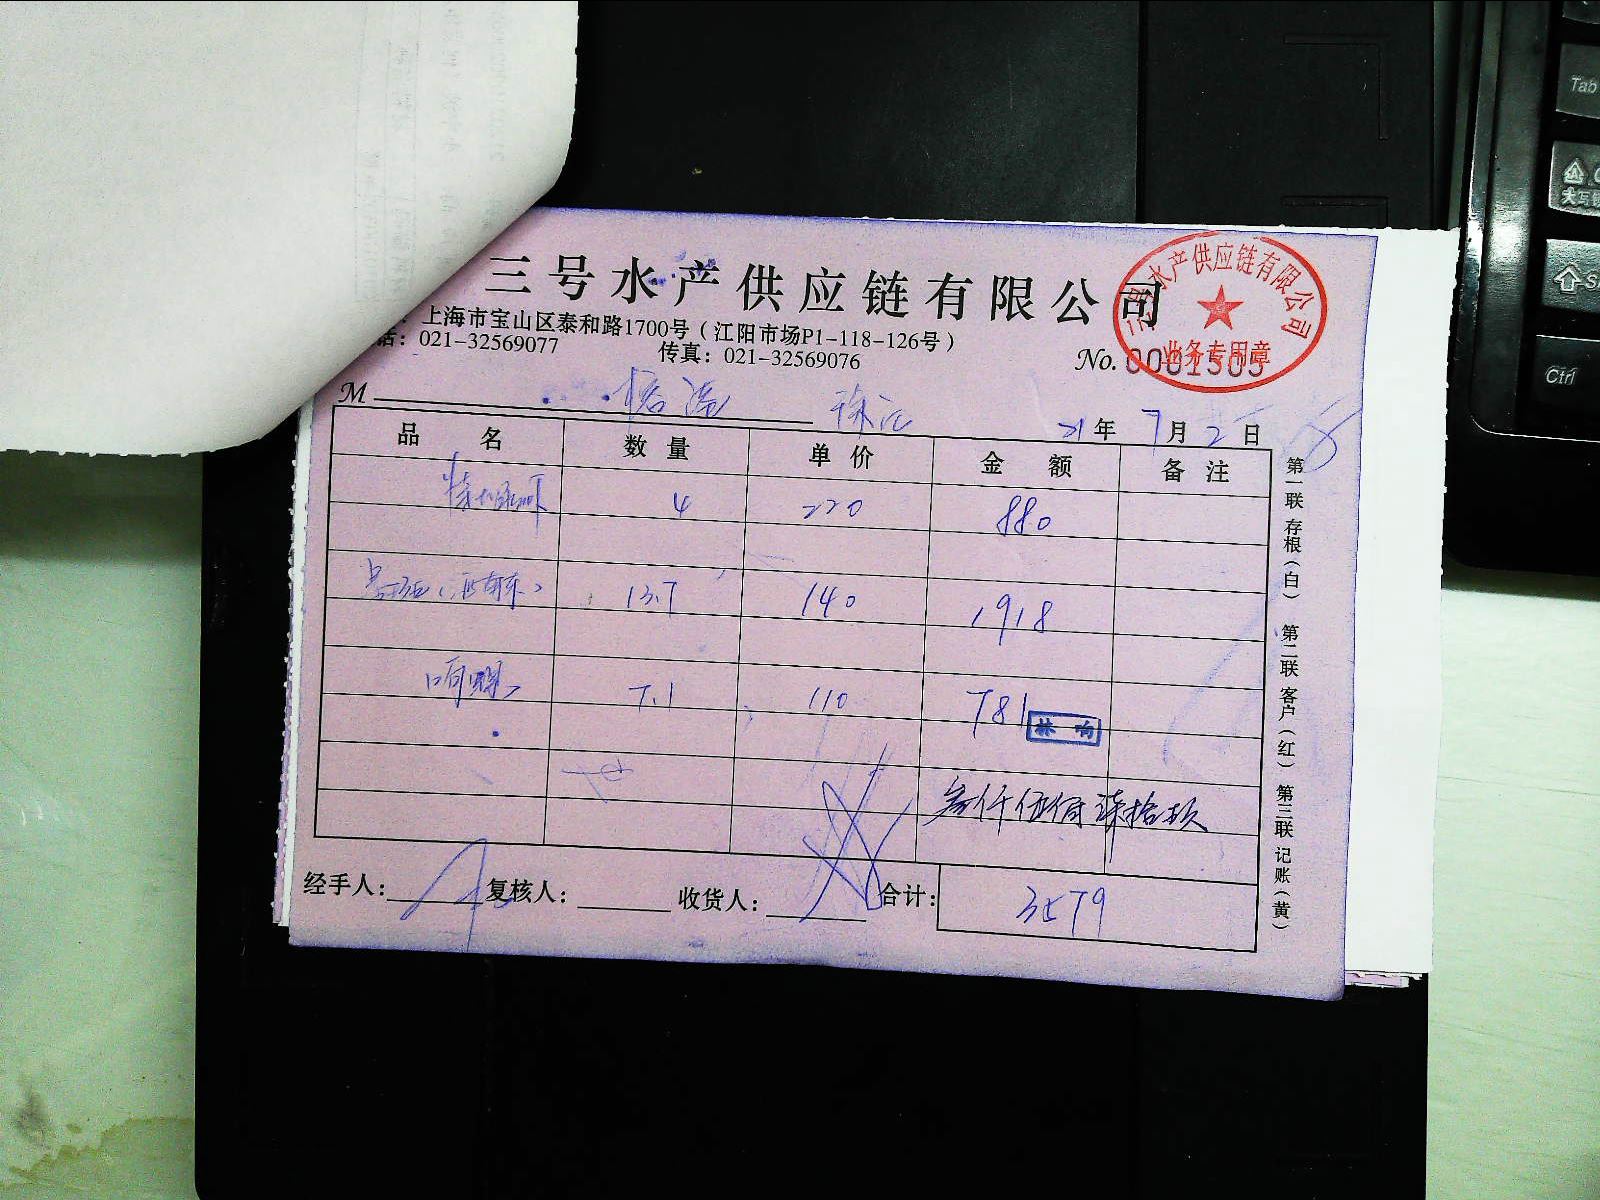 三号水产供应链有限公司
上海市宝山区泰和路1700号（江阳市场P1-118-126号）
话：021-32569077 传真：021-32569076
三号水产供应链有限公司
业务专用章
No. 0001505
M
21年 7月 2日
品名 数量 单价 金额 备注
4 220 880
13.7 140 1918
7.1 110 781
林 南
叁仟伍佰柒拾玖
经手人： 复核人： 收货人： 合计： 3579
第一联 存根（白） 第二联 客户（红） 第三联 记账（黄）
Tab
大写锁
Ctrl